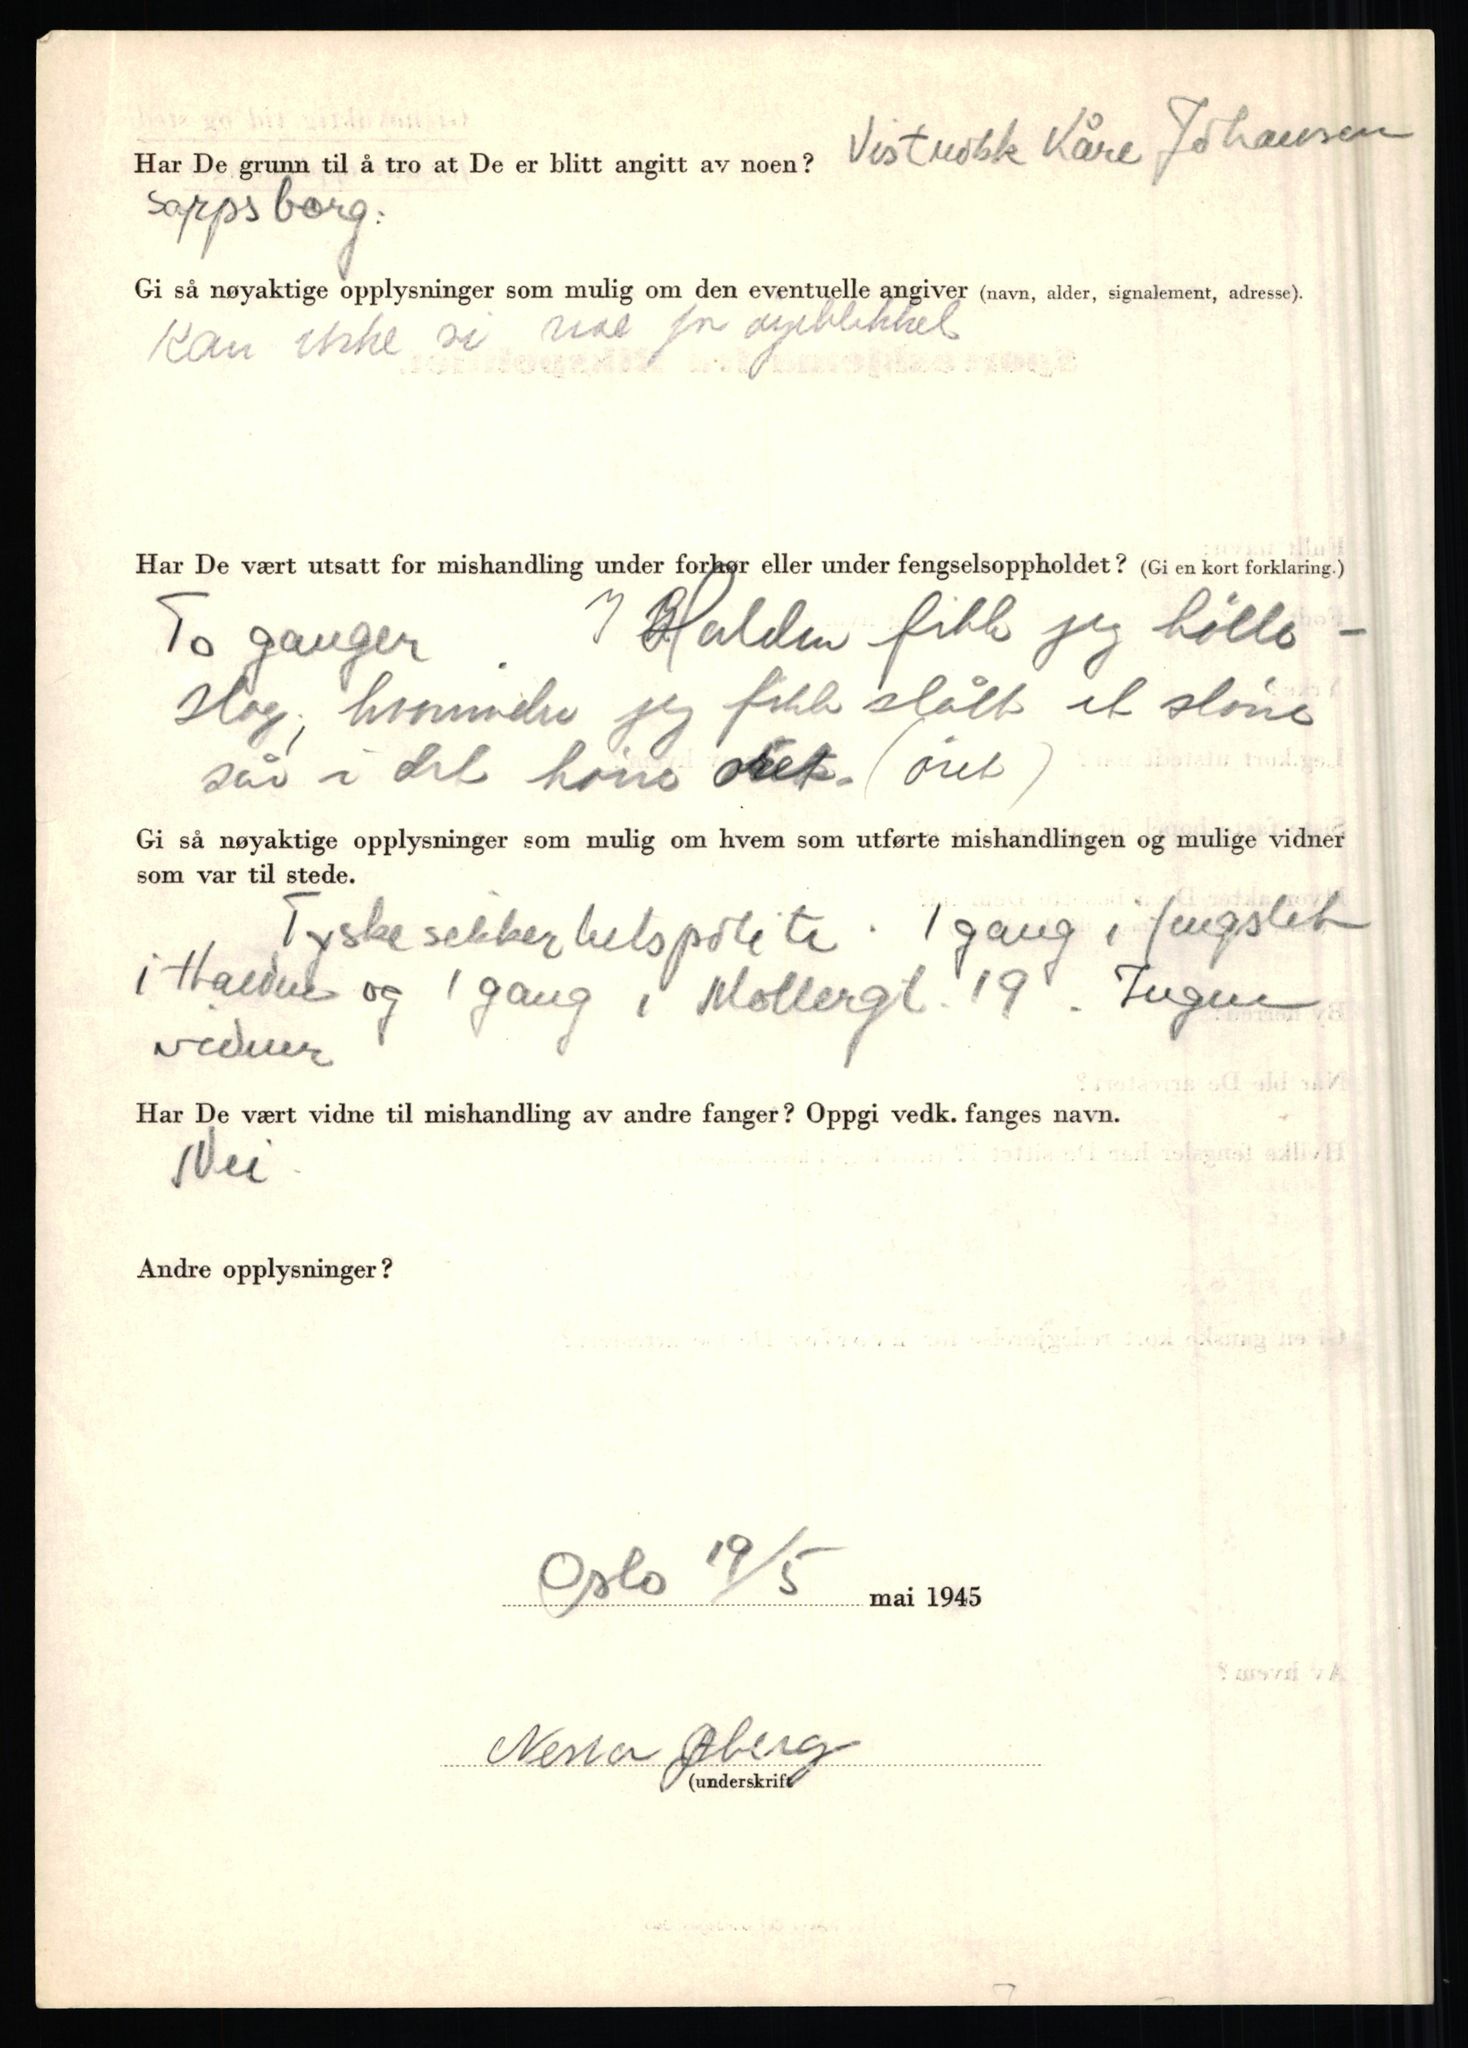 Har De grunn til å tro at De er blitt angitt av noen? Vistnokk Kåre Johansen
sarpsborg.
Gi så nøyaktige opplysninger som mulig om den eventuelle angiver (navn, alder, signalement, adresse).
Kan ikke si noe for øyeblikket
Har De vært utsatt for mishandling under forhør eller under fengselsoppholdet? (Gi en kort forklaring.)
To ganger. I Halden fikk jeg kølle-
slag, hvorunder jeg fikk slått et større
sår i det høire øret. (øret)
Gi så nøyaktige opplysninger som mulig om hvem som utførte mishandlingen og mulige vidner
som var til stede.
Tyske sikkerhetspoliti. 1 gang i fengslet
i Halden og 1 gang i Møllergt. 19. Ingen
vidner
Har De vært vidne til mishandling av andre fanger? Oppgi vedk. fanges navn.
Nei.
Andre opplysninger?
Oslo 19/5 mai 1945
Øberg
(underskrift